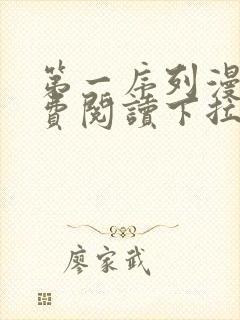 第一序列漫
費閱讀下拉
廖家武